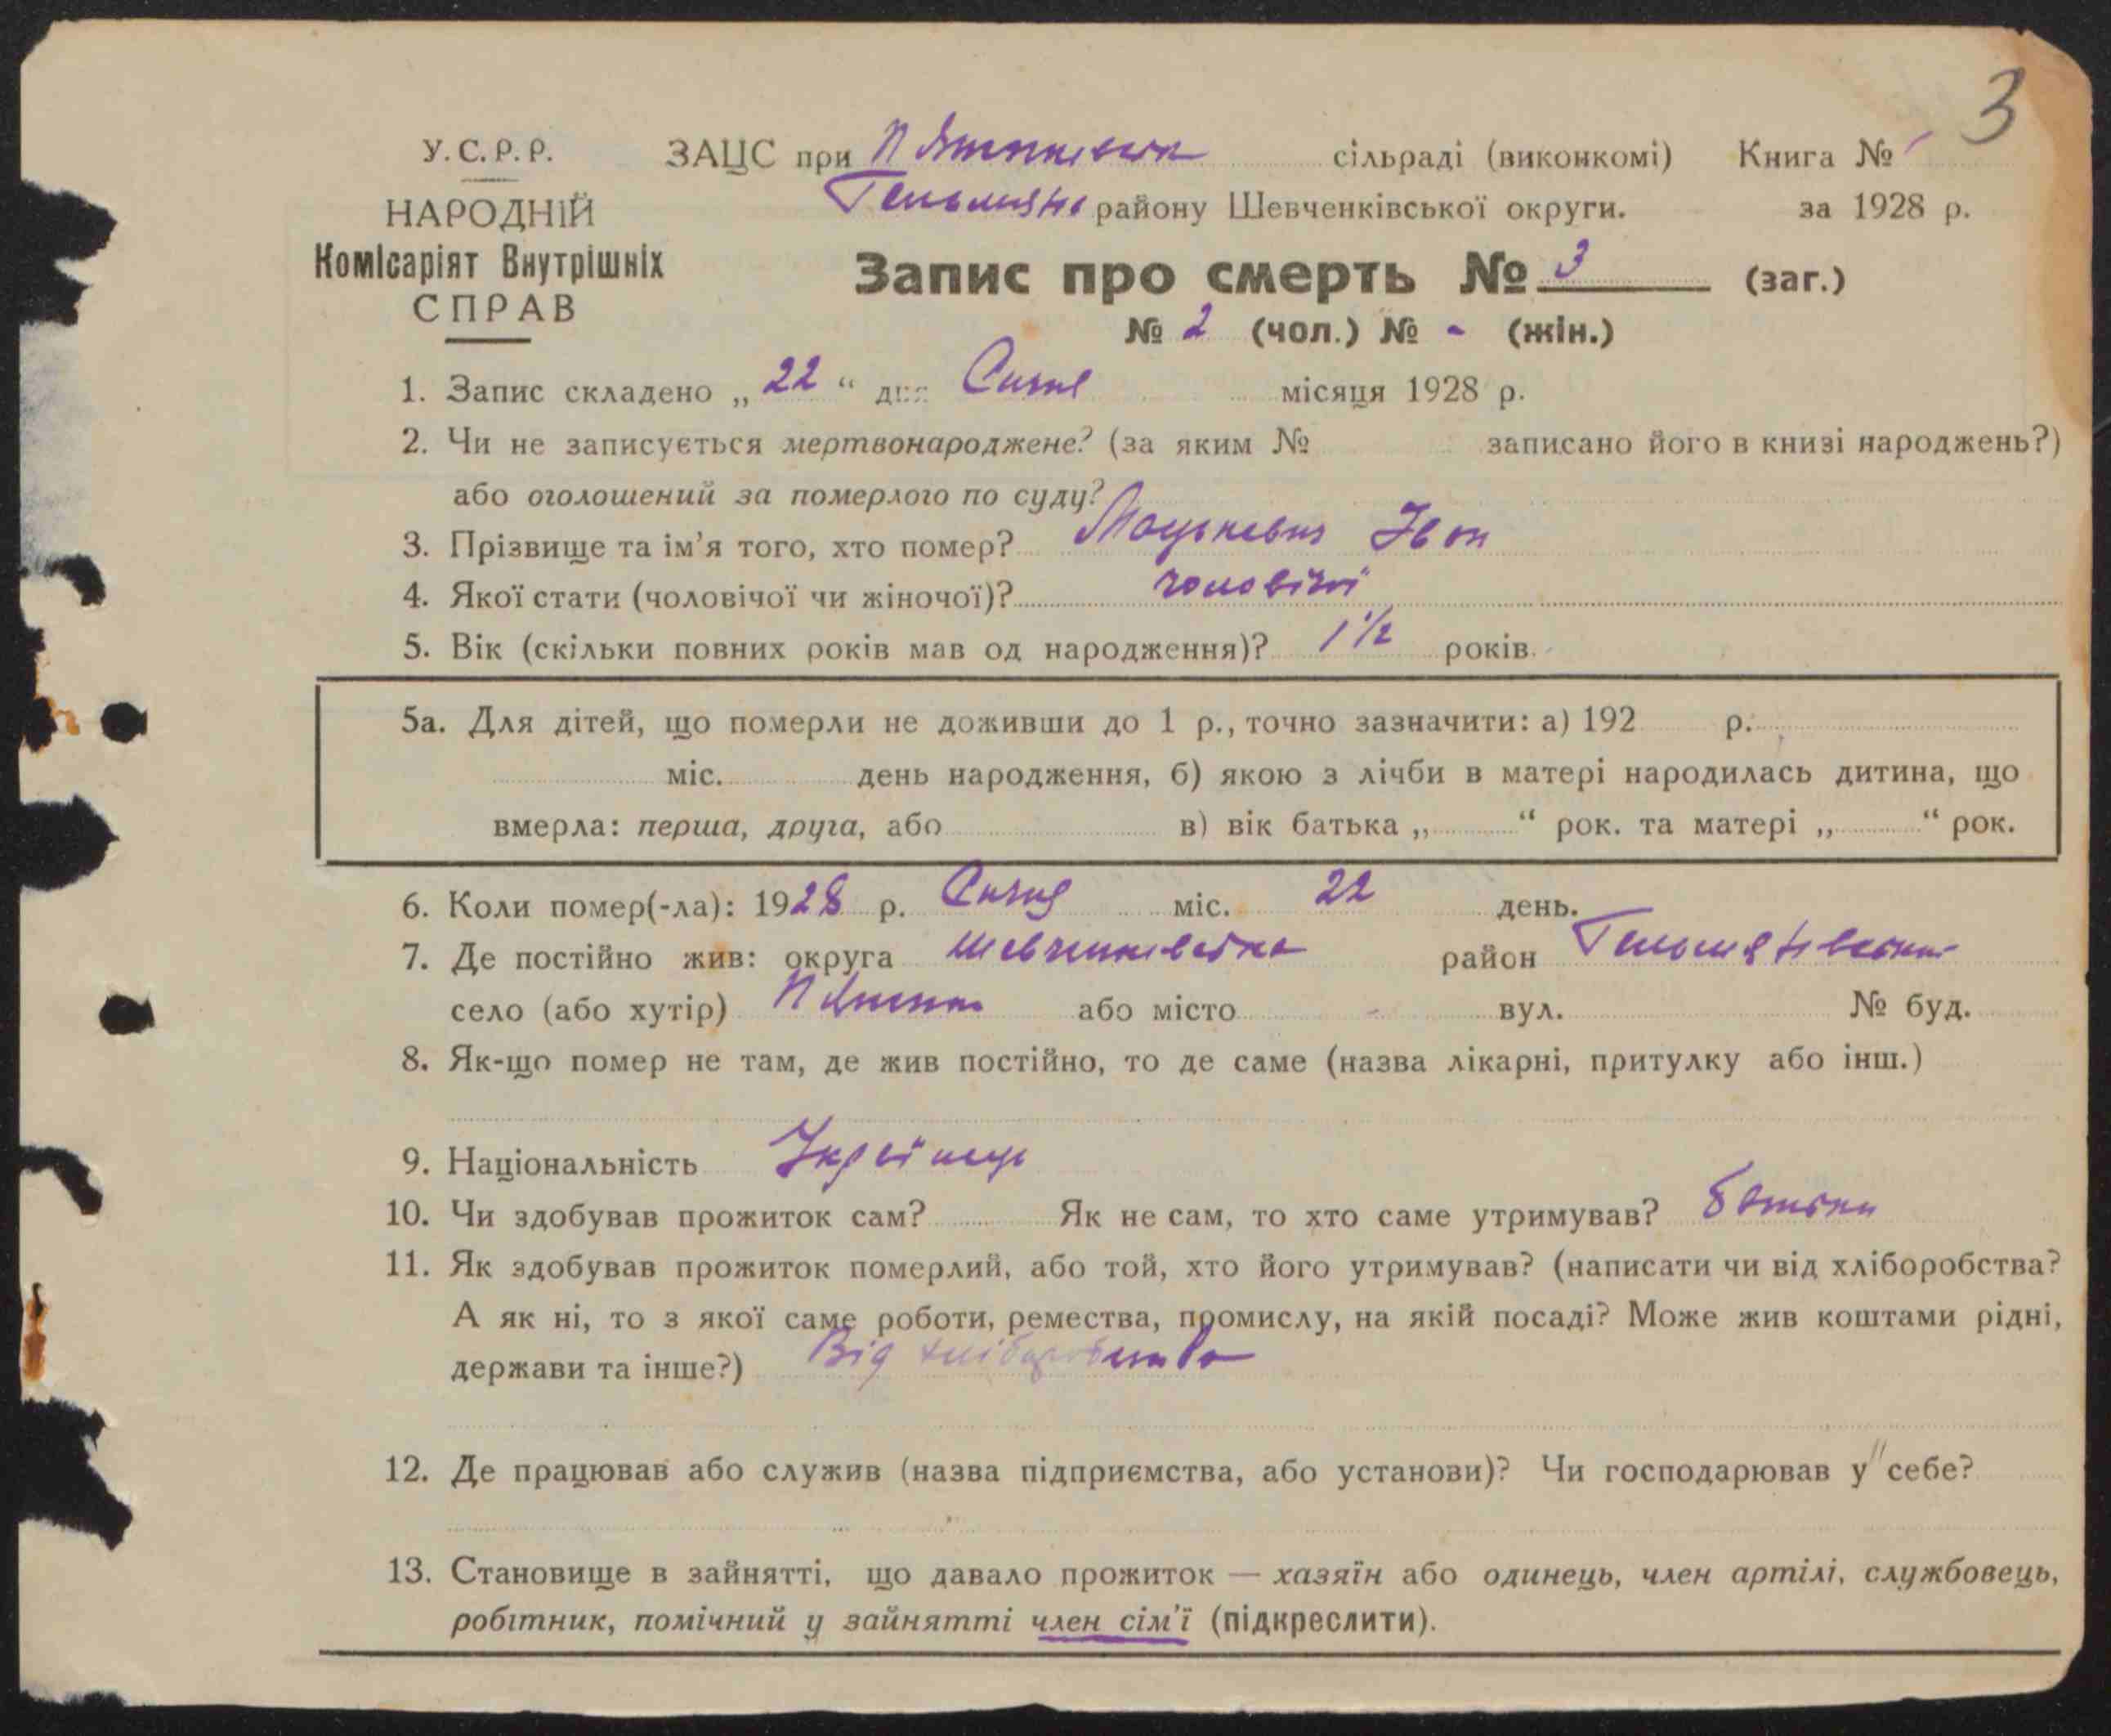 3
У.С.Р.Р. ЗАЦС при сільраді (виконкомі) Книга №
НАРОДНІЙ району Шевченківської округи. за 1928 р.
Комісаріят Внутрішніх
СПРАВ
Запис про смерть № 3 (заг.)
№ 2 (чол.) № - (жін.)
1. Запис складено „22“ дня Січня місяця 1928 р.
2. Чи не записується мертвонароджене? (за яким № записано його в книзі народжень?)
або оголошений за померлого по суду?
3. Прізвище та ім'я того, хто помер? Мацькевич Іван
4. Якої стати (чоловічої чи жіночої)? чоловічої
5. Вік (скільки повних років мав од народження)? 1 1/2 років
5а. Для дітей, що померли не доживши до 1 р., точно зазначити: а) 192 р.
міс. день народження, б) якою з лічби в матері народилась дитина, що
вмерла: перша, друга, або в) вік батька „ “ рок. та матері „ “ рок.
6. Коли помер(-ла): 1928 р. Січня міс. 22 день.
7. Де постійно жив: округа Шевченківська район
село (або хутір) або місто - вул. № буд.
8. Як-що помер не там, де жив постійно, то де саме (назва лікарні, притулку або інш.)
9. Національність Українець
10. Чи здобував прожиток сам? Як не сам, то хто саме утримував? батьки
11. Як здобував прожиток померлий, або той, хто його утримував? (написати чи від хліборобства?
А як ні, то з якої саме роботи, ремества, промислу, на якій посаді? Може жив коштами рідні,
держави та інше?) Від хліборобства
12. Де працював або служив (назва підприємства, або установи)? Чи господарював у себе? "
13. Становище в зайнятті, що давало прожиток — хазяїн або одинець, член артілі, службовець,
робітник, помічний у зайнятті член сім'ї (підкреслити).